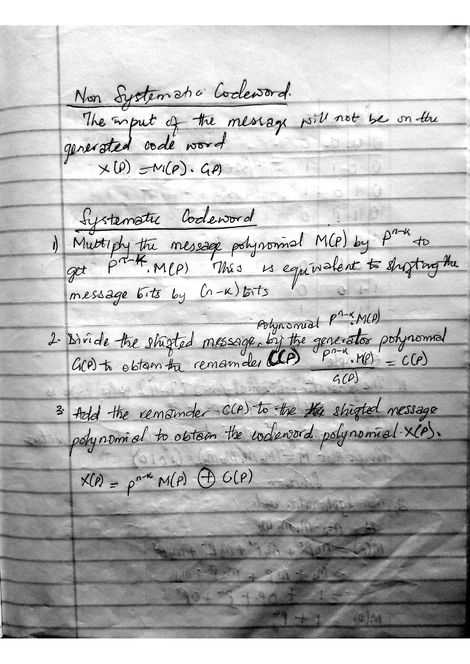 Non Systematic Codeword.
The input of the message will not be on the
generated code word
X(P) = M(P) . G(P)
Systematic Codeword
1) Multiply the message polynomial M(P) by P^n-k to
get P^n-k . M(P) This is equivalent to shifting the
message bits by (n-k) bits
Polynomial P^n-k . M(P)
2. Divide the shifted message, by the generator polynomial
G(P) to obtain the remainder C(P) P^n-k . M(P) / G(P) = C(P)
3 Add the remainder C(P) to the shifted message
polynomial to obtain the codeword polynomial X(P).
X(P) = P^n-k M(P) ⊕ C(P)